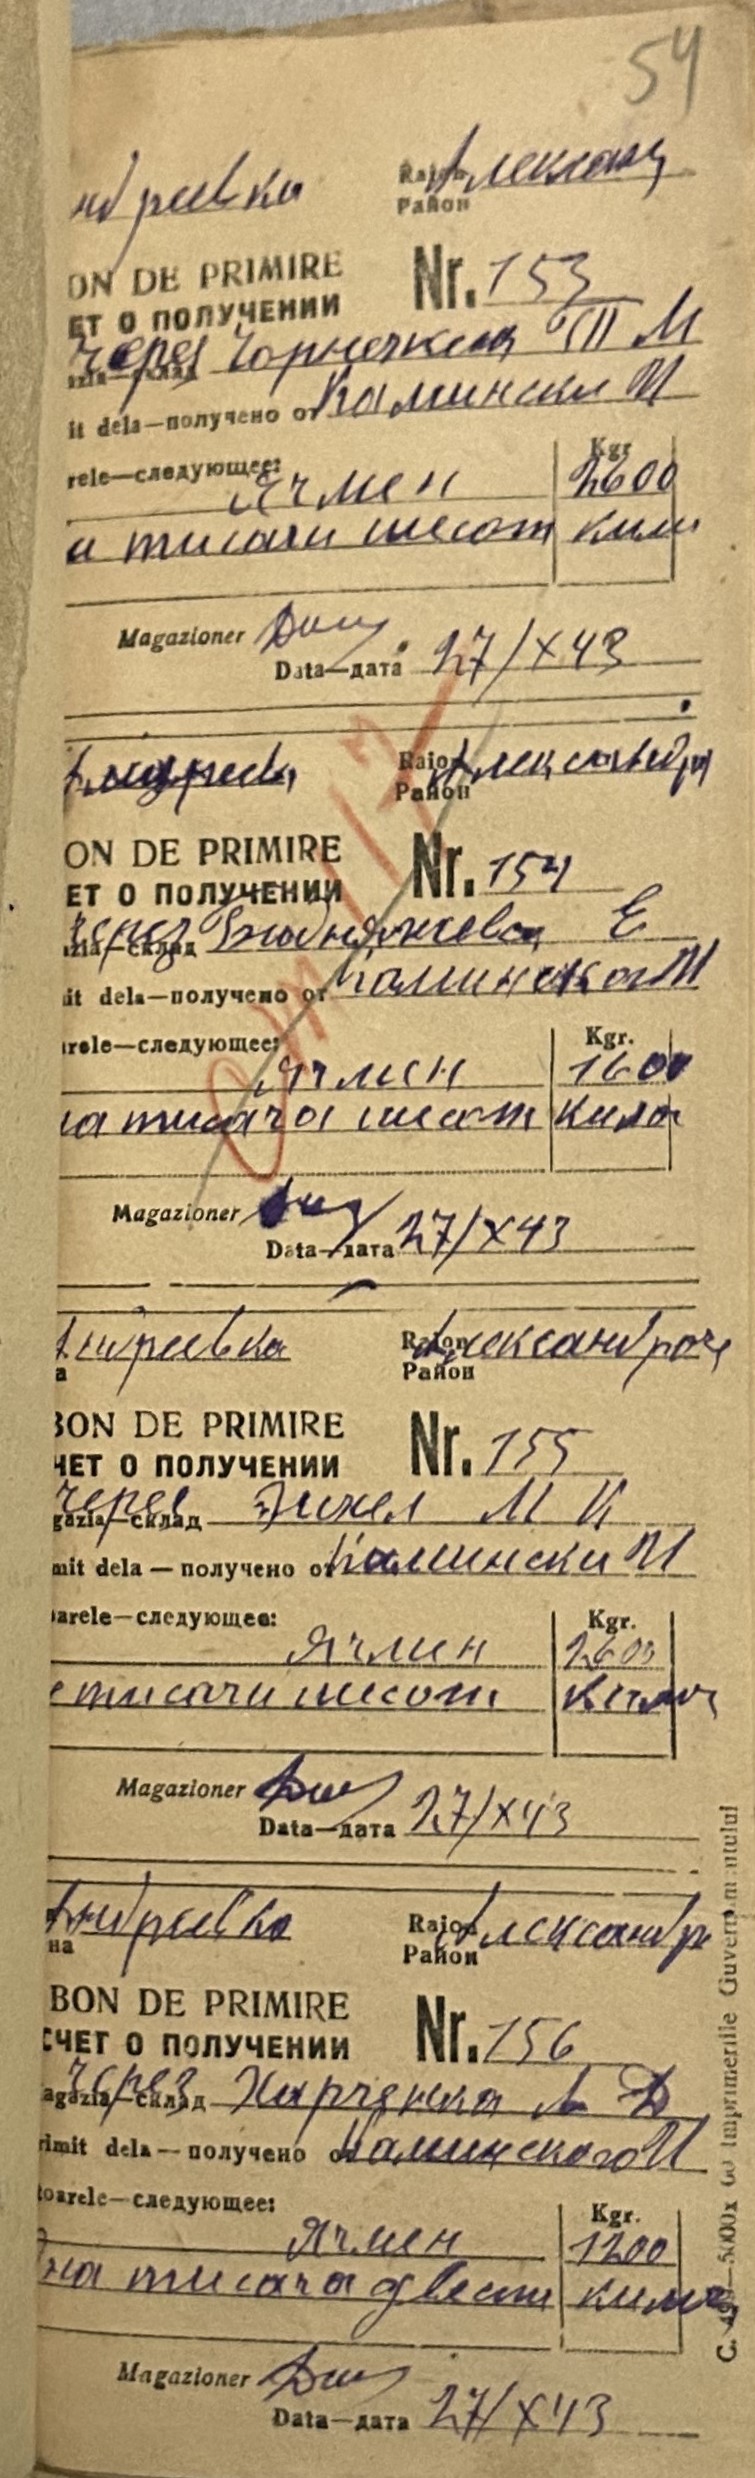 54
ндреевка Rajon Александ
Район
ON DE PRIMIRE Nr. 153
ЕТ О ПОЛУЧЕНИИ
через П М
azia—склад
it dela—получено от Камински И
rele—следующее: Kgr
Ячмен 2600
и тисячи шесот кило
Magazioner
Data—дата 27/X 43
Андреевка Rajon Александр
Район
ON DE PRIMIRE Nr. 154
ЕТ О ПОЛУЧЕНИИ
через Е
azia—склад
it dela—получено от Каминского И
arele—следующее: Kgr.
Ячмен 1600
на тисяча шесот кило
Magazioner
Data—дата 27/X 43
Андреевка Raion Александро
а Район
BON DE PRIMIRE Nr. 155
ЧЕТ О ПОЛУЧЕНИИ
через М К
gazia—склад
mit dela—получено от Камински И
oarele—следующее: Kgr.
Ячмен 2600
е тисячи шесот кило
Magazioner
Data—дата 27/X 43
Андреевка Rajon Александр
на Район
BON DE PRIMIRE Nr. 156
СЧЕТ О ПОЛУЧЕНИИ
через Харченка Д
agazia—склад
rimit dela—получено от Каминского И
toarele—следующее: Kgr.
Ячмен 1200
дна тисяча двести кило
Magazioner
Data—дата 27/X 43
Imprimeriile Guvernământului